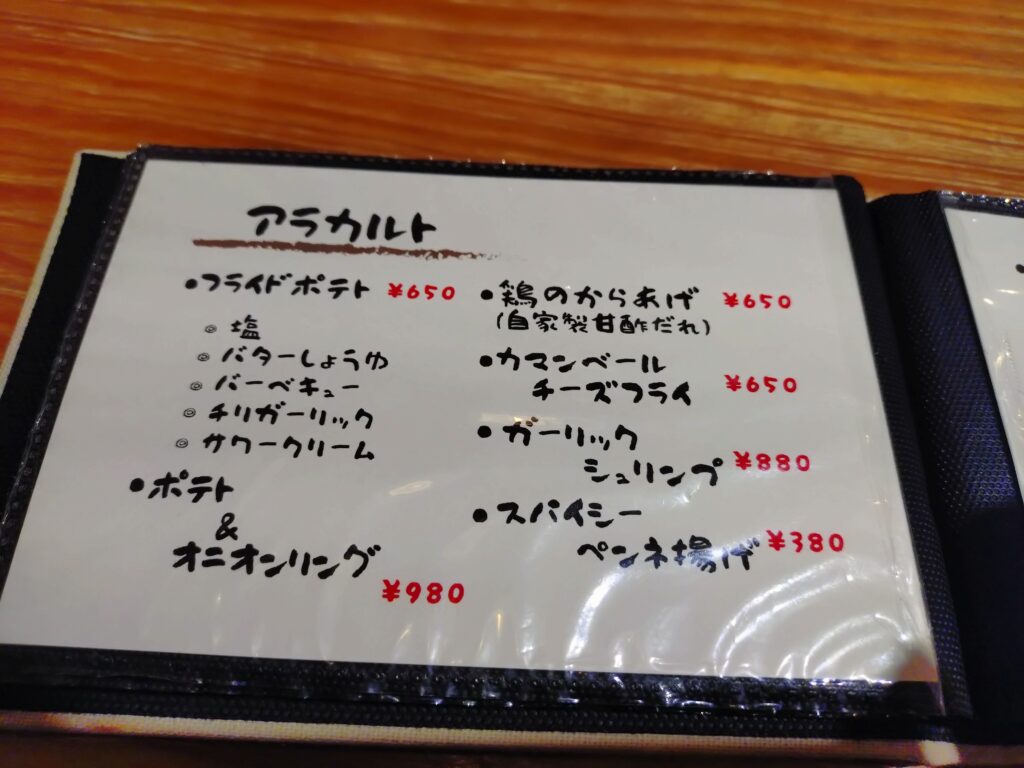 アラカルト
•フライドポテト ¥650
◎ 塩
◎ バターしょうゆ
◎ バーベキュー
◎ チリガーリック
◎ サワークリーム
•ポテト
&
オニオンリング
¥980
•鶏のからあげ ¥650
(自家製甘酢だれ)
•カマンベール
チーズフライ ¥650
•ガーリック
シュリンプ ¥880
•スパイシー
ペンネ揚げ ¥380